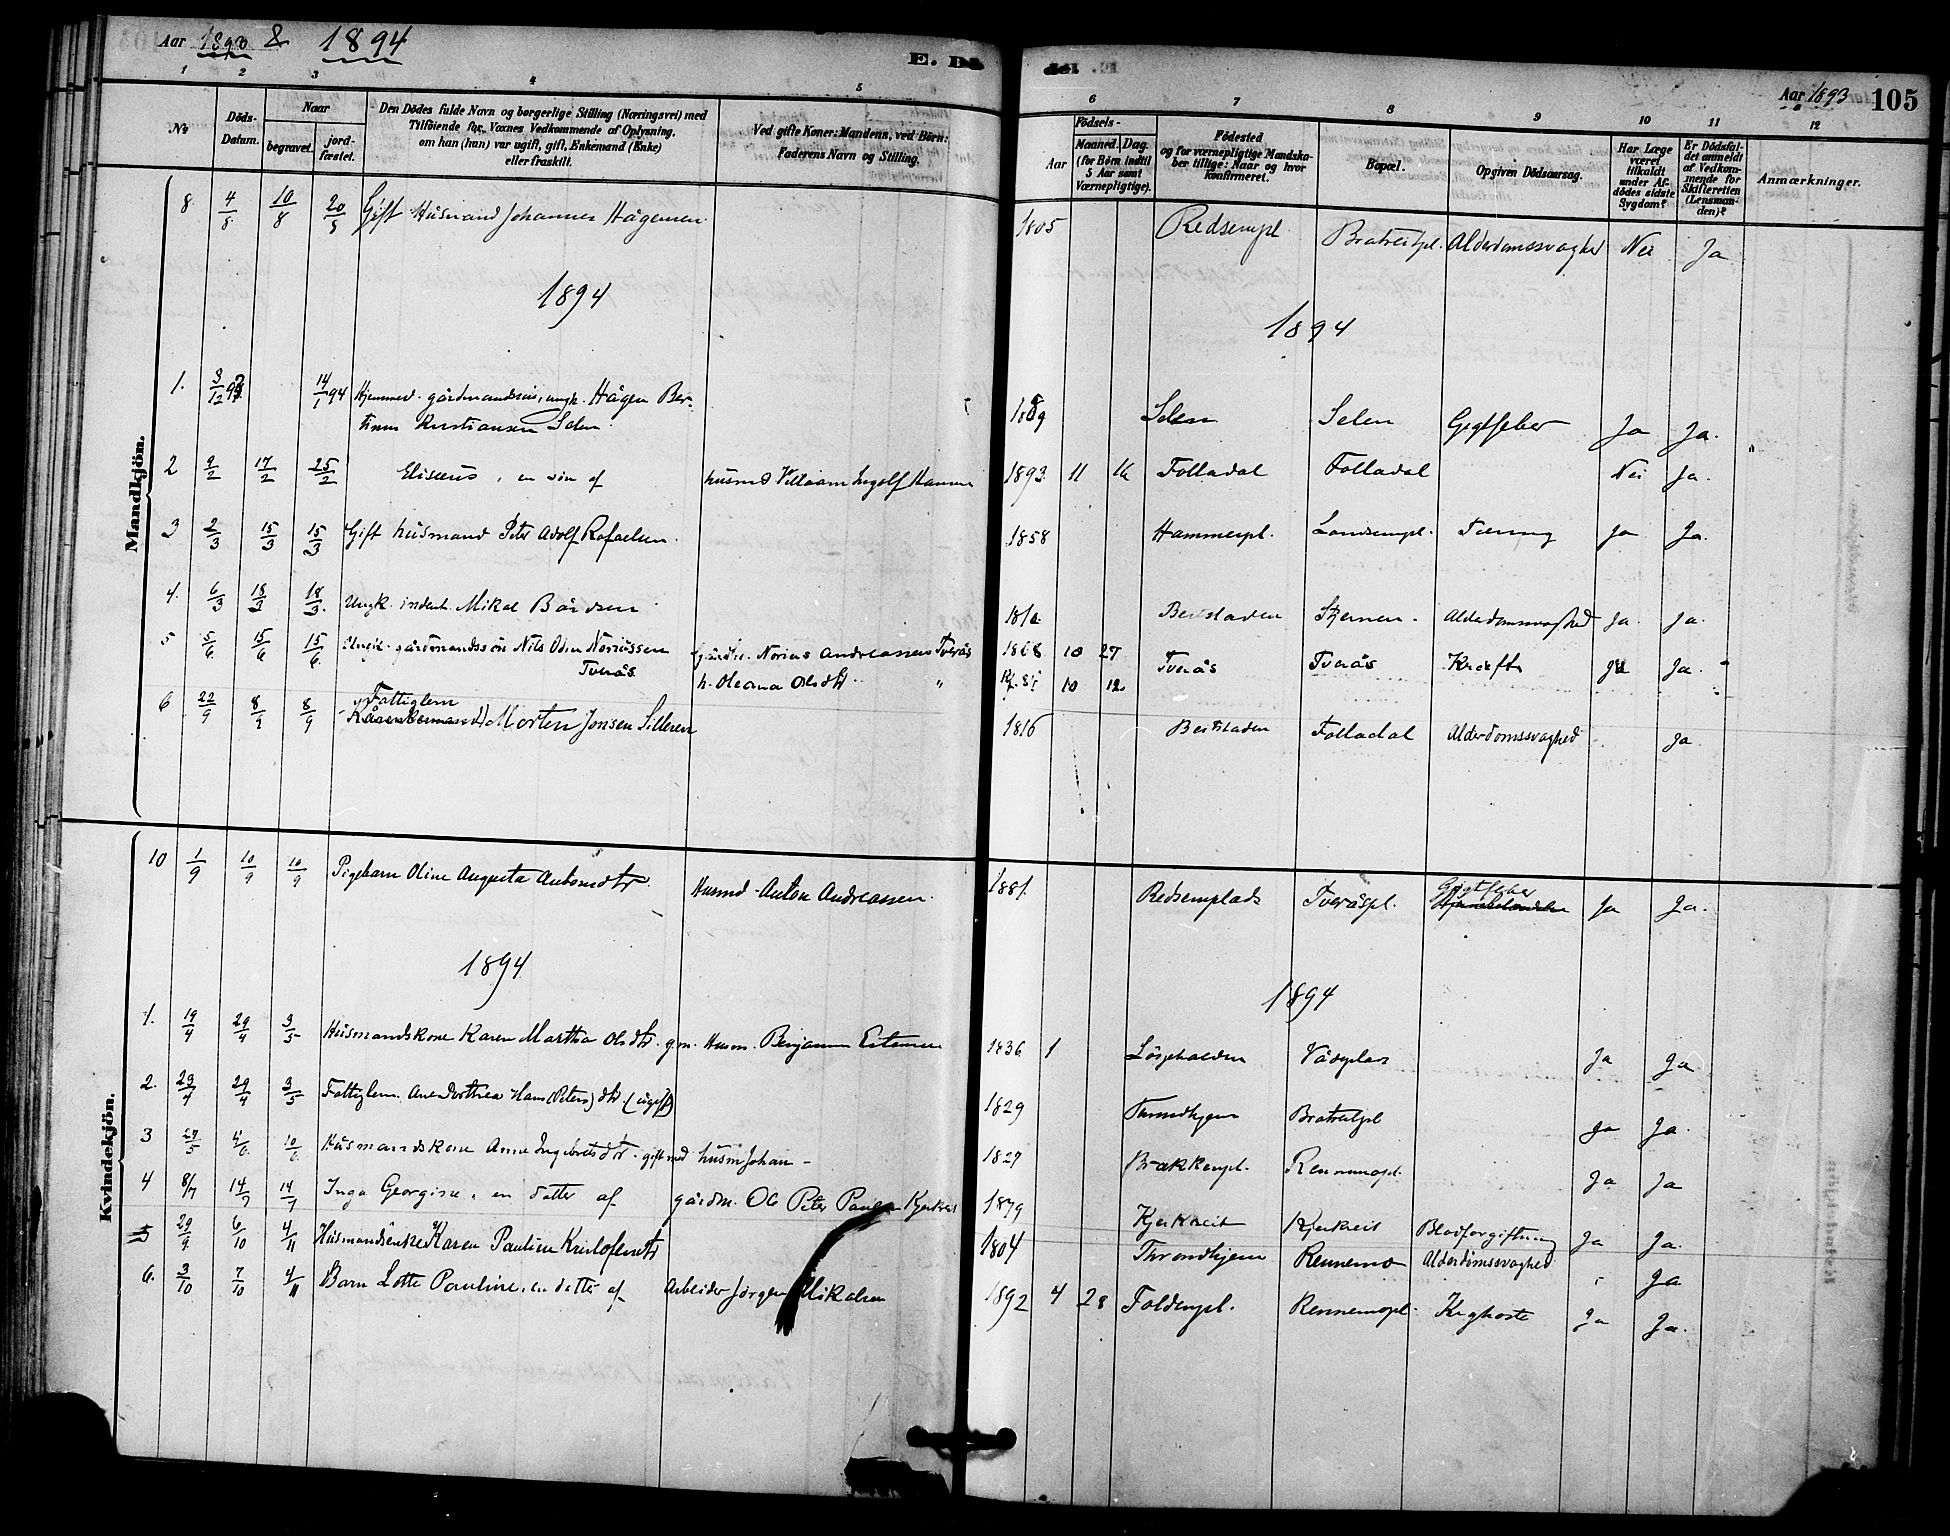 Aar 1893 & 1894
E. Dö
de.
Aar 1893 105
1 2 3 4 5 6 7 8 9 10 11 12
No
Döds-Datum.
Naar
begravet.
jord-fæstet.
Den Dödes fulde Navn og borgerlige Stilling (Næringsvei) med
Tilföiende for Voxnes Vedkommende af Oplysning,
om han (hun) var ugift, gift, Enkemand (Enke)
eller fraskilt.
Ved gifte Koner: Mandens, ved Börn:
Faderens Navn og Stilling.
Födsels-
Aar
Maaned. Dag.
(for Börn indtil
5 Aar samt
Værnepligtige).
Födested
og for værnepligtige Mandska-
ber tillige: Naar og hvor
konfirmeret.
Bopæl.
Opgiven Dödsaarsag.
Har Læge
været
tilkaldt
under Af-
dödes sidste
Sygdom?
Er Dödsfal-
det anmeldt
af Vedkom-
mende for
Skifteretten
(Lensman-
den)?
Anmærkninger.
Mandkjön.
8 4/8 10/8 20/8 Gift Husmand Johannes Hågensen 1805 Redsempl. Bratreitpl. Alderdomssvaghed Nei Ja
1894 1894
1. 3/12 93 14/1 94 Hjemmev. gårdmandssøn, ungk. Hågen Ber-
tinus Kristiansen Selen 1869 Selen Selen Gigtfeber Ja Ja.
2 9/2 17/2 25/2 Eliseus, en søn af husmd Villiam Ingolf Hansen 1893. 11 16 Folladal Folladal Nei Ja.
3 2/3 15/3 15/3 Gift husmand Peter Adolf Rafaelsen. 1858 Hammerpl. Landsempl. Tæring Ja Ja.
4. 6/3 18/3 18/3. Ungk. inderst Mikal Bårdsen Beitstaden Skjernen. Alderdomssvaghed Ja. Ja.
5 5/6 15/6 15/6. Ungk. gårdmandssøn Nils Odin Noriussen
Tverås Gårdm. Norius Andreassen Tverås
h. Oleana Olsdtr. " 1868 10 27
10 12. Tverås Tverås Kræft Ja Ja.
6 22/9 8/9 8/9 Fattiglem
Morten Jonsen Silleren 1816 Beitstaden Folladal Alderdomssvaghed Ja
Kvindekjön.
10 1/9 10/9 10/9 Pigebarn Oline Augusta Antonsdtr. Husmd. Anton Andreassen. 1881. Redsemplads Tveråspl. Gigtfeber Ja Ja.
1894 1894
1. 19/4 29/4 3/5 Husmandskone Karen Martha Olsdtr. g.m. Husm. Benjamin Estensen 1836 1 Vådeplas Ja Ja.
2. 23/4 29/4 3/5 Fattiglem. Ane Dorthea Hans (Peters) dtr (ugift) 1829 Trondhjem Bratreitpl Ja Ja.
3 27/5 4/6 10/6 Husmandskone Anne Ingebretsdtr. gift med husm Johan - 1827 Brækkenpl. Rennemopl. Ja Ja
4 8/7 14/7 14/7 Inga Georgine, en datter af gårdm. Ole Peter Paulsen Kjerkreit 1879 Kjerkreit Kjerkreit Blodforgiftning Ja Ja.
5 29/9. 6/10 4/11 Husmandsenke Karen Pauline Kristofersdtr 1804 Throndhjem Rennemo Alderdomssvaghed - Ja
6. 3/10 7/10 4/11 Barn Lotte Pauline, en datter af Arbeider Jørgen Mikalsen 1892 4 28 Foldenpl. Rennemopl. Kighoste Ja Ja.